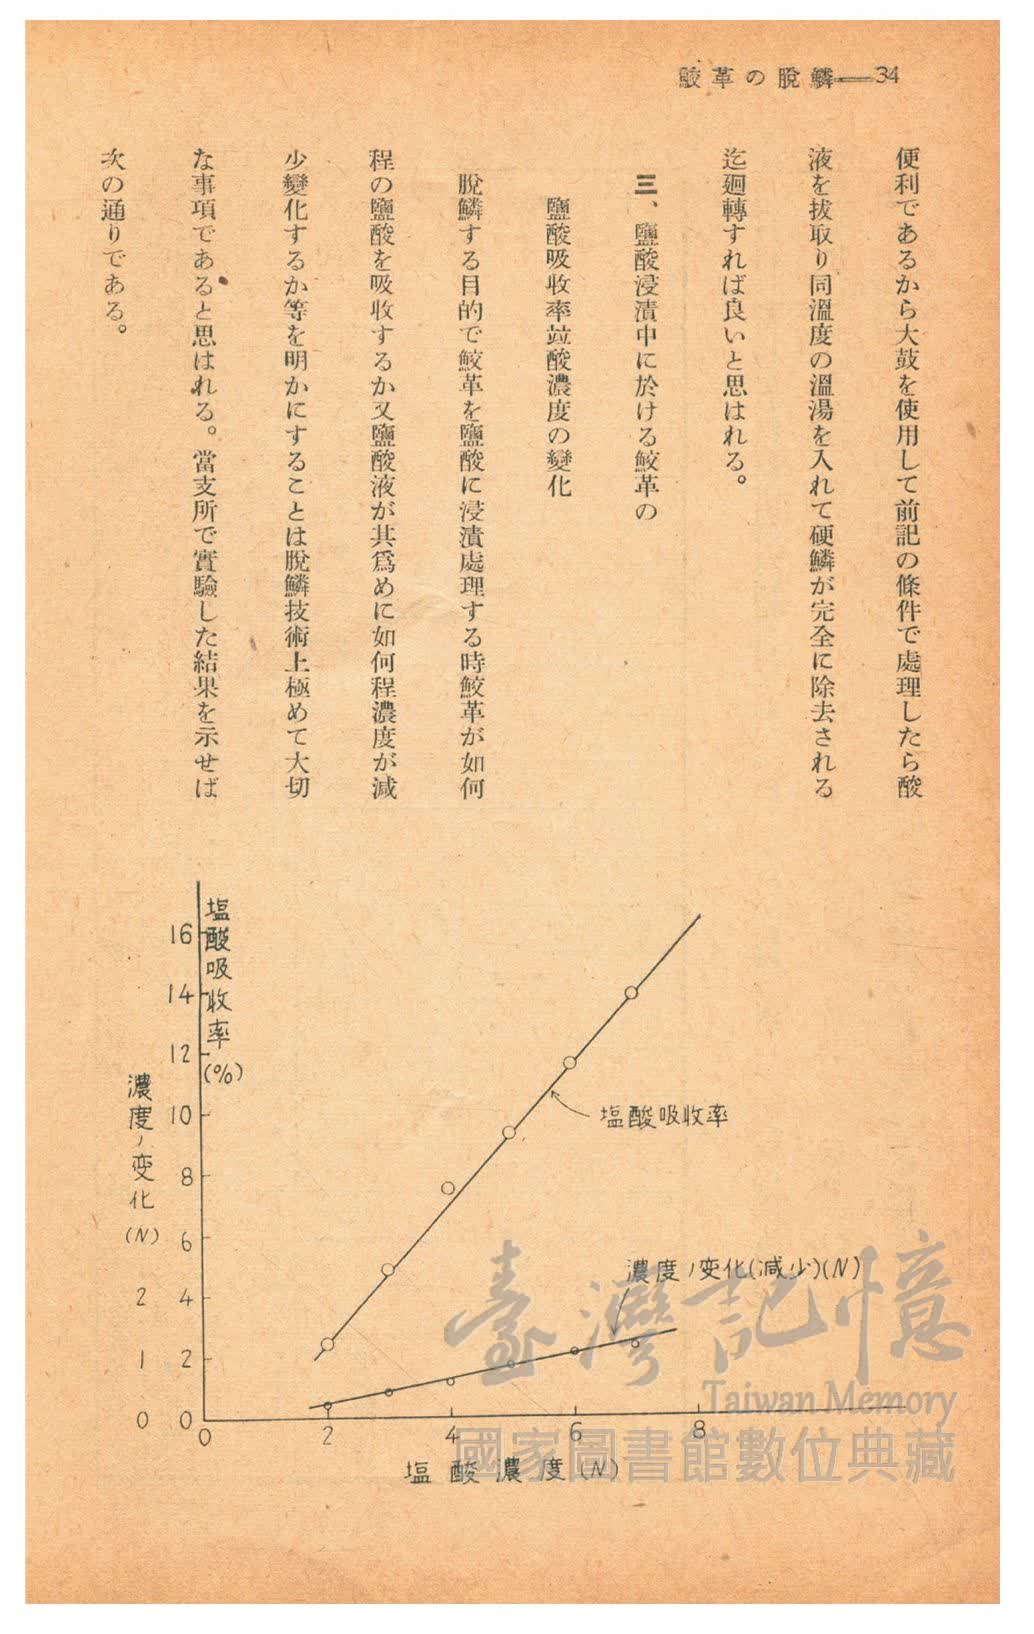 鮫革の脫鱗——34
便利であるから大鼓を使用して前記の條件で處理したら酸
液を拔取り同溫度の溫湯を入れて硬鱗が完全に除去される
迄廻轉すれば良いと思はれる。
三、鹽酸浸漬中に於ける鮫革の
鹽酸吸收率竝酸濃度の變化
脫鱗する目的で鮫革を鹽酸に浸漬處理する時鮫革が如何
程の鹽酸を吸收するか又鹽酸液が其爲めに如何程濃度が減
少變化するか等を明かにすることは脫鱗技術上極めて大切
な事項であると思はれる。當支所で實驗した結果を示せば
次の通りである。
塩酸吸收率(%)
16
14
12
10
8
6
4
2
0
濃度ノ変化(N)
2
1
0
塩酸吸收率
濃度ノ変化(減少)(N)
0 2 4 6 8
塩酸濃度(N)
臺灣記憶
Taiwan Memory
國家圖書館數位典藏